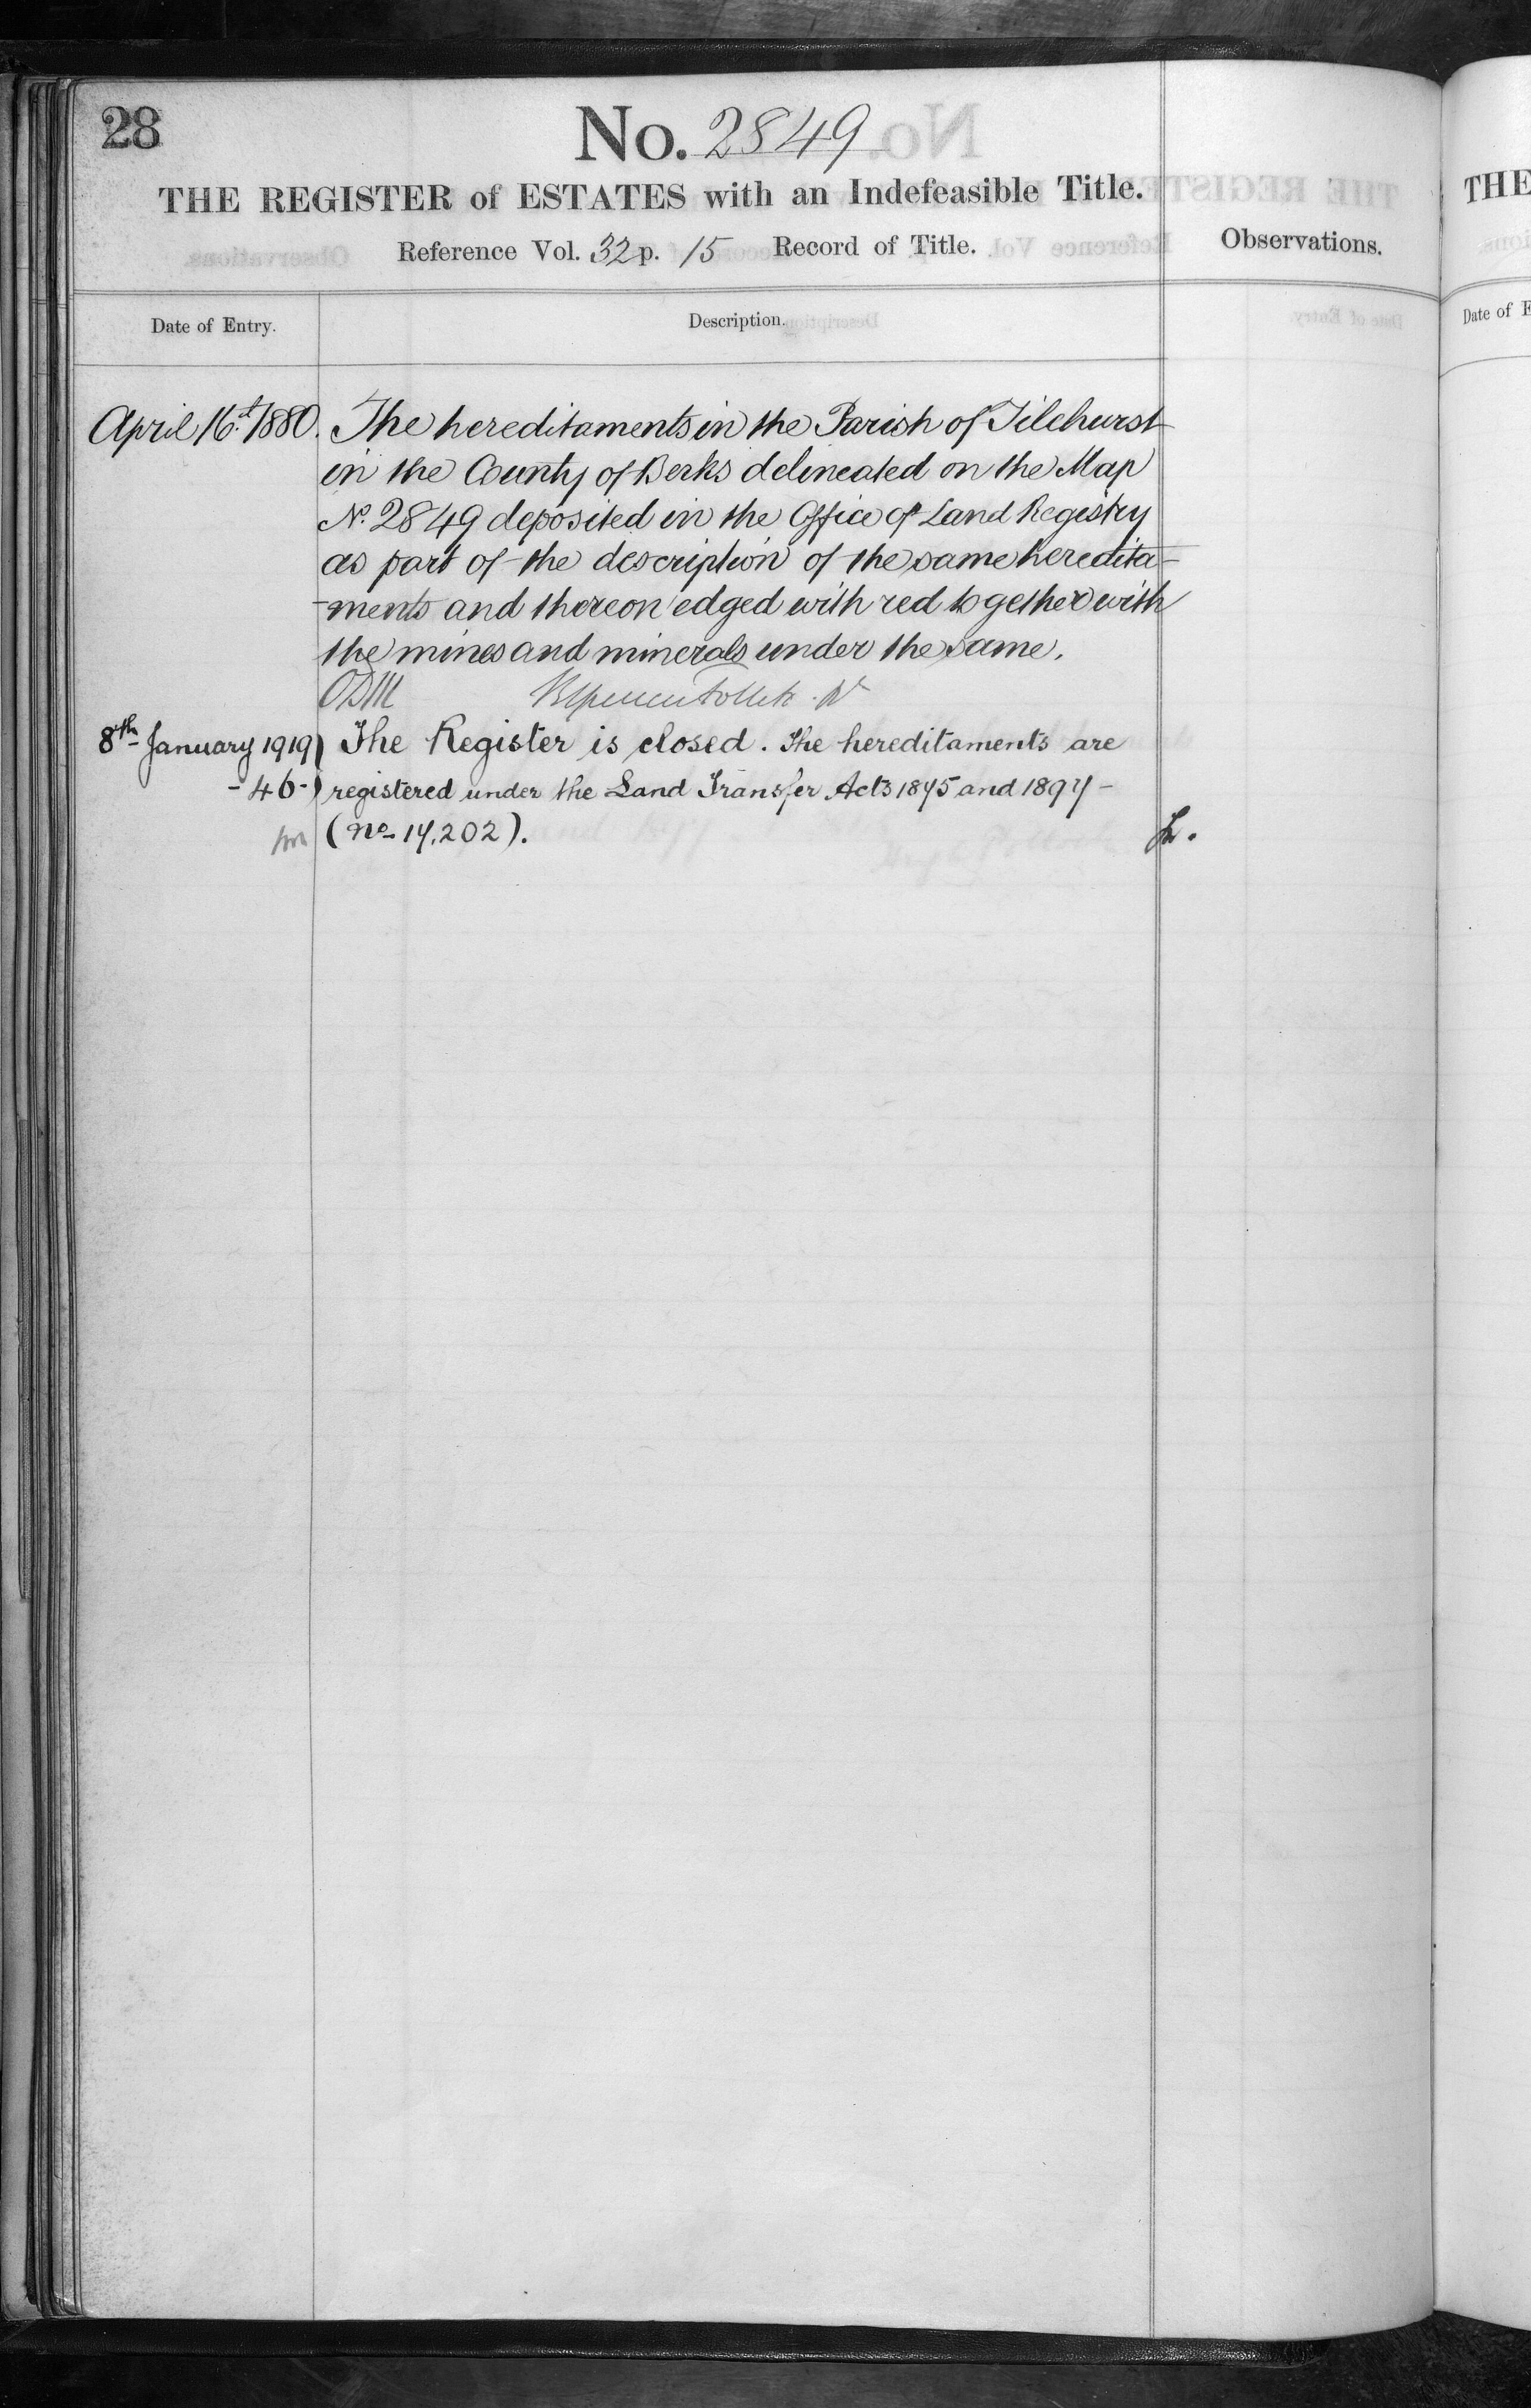 28
No. 2849
THE REGISTER of ESTATES with an Indefeasible Title.
Reference Vol. 32 p. 15 Record of Title.
Observations.
Date of Entry.
Description.
April 16th 1880. The hereditaments in the Parish of Tilehurst
in the County of Berks delineated on the Map
No. 2849 deposited in the Office of Land Registry
as part of the description of the same heredita-
-ments and thereon edged with red together with
the mines and minerals under the same.
8th January 1919 The Register is closed. The hereditaments are
-46- registered under the Land Transfer Acts 1875 and 1897-
(No 17,202).
THE
Date of E